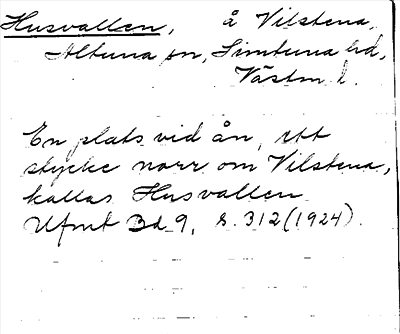 Husvallen, å Vilstena,
Altuna sn, Simtuna hd,
Västm l.
En plats vid ån, ett
stycke norr om Vilstena,
kallas Husvallen.
Ufmt Bd 9, s. 312 (1924).